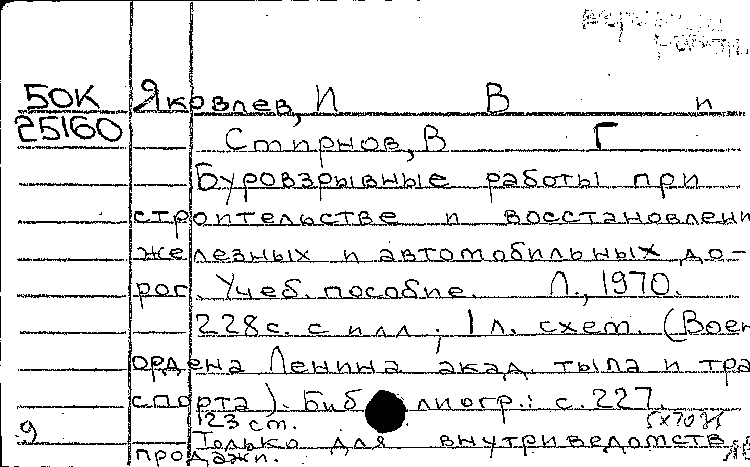 50К Яковлев, И В и
25160 Смирнов, В Г
Буровзрывные работы при
строительстве и восстановлени
железных и автомобильных до-
рог. Учеб. пособие. Л., 1970.
228с. с илл; 1 л. схем. (Воен
ордена Ленина акад. тыла и тра
спорта). Библиогр.: с. 227.
123 ст.
9 Только для внутриведомств.
продажи.